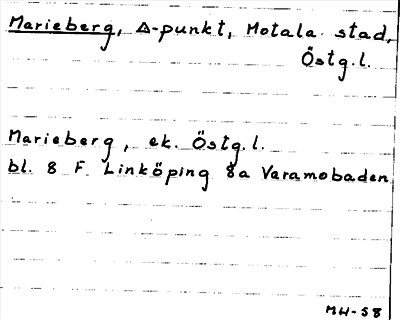 Marieberg, Δ-punkt, Motala stad,
Östg.l.
Marieberg, ek. Östg.l.
bl. 8 F Linköping 8a Varamobaden
MH-58